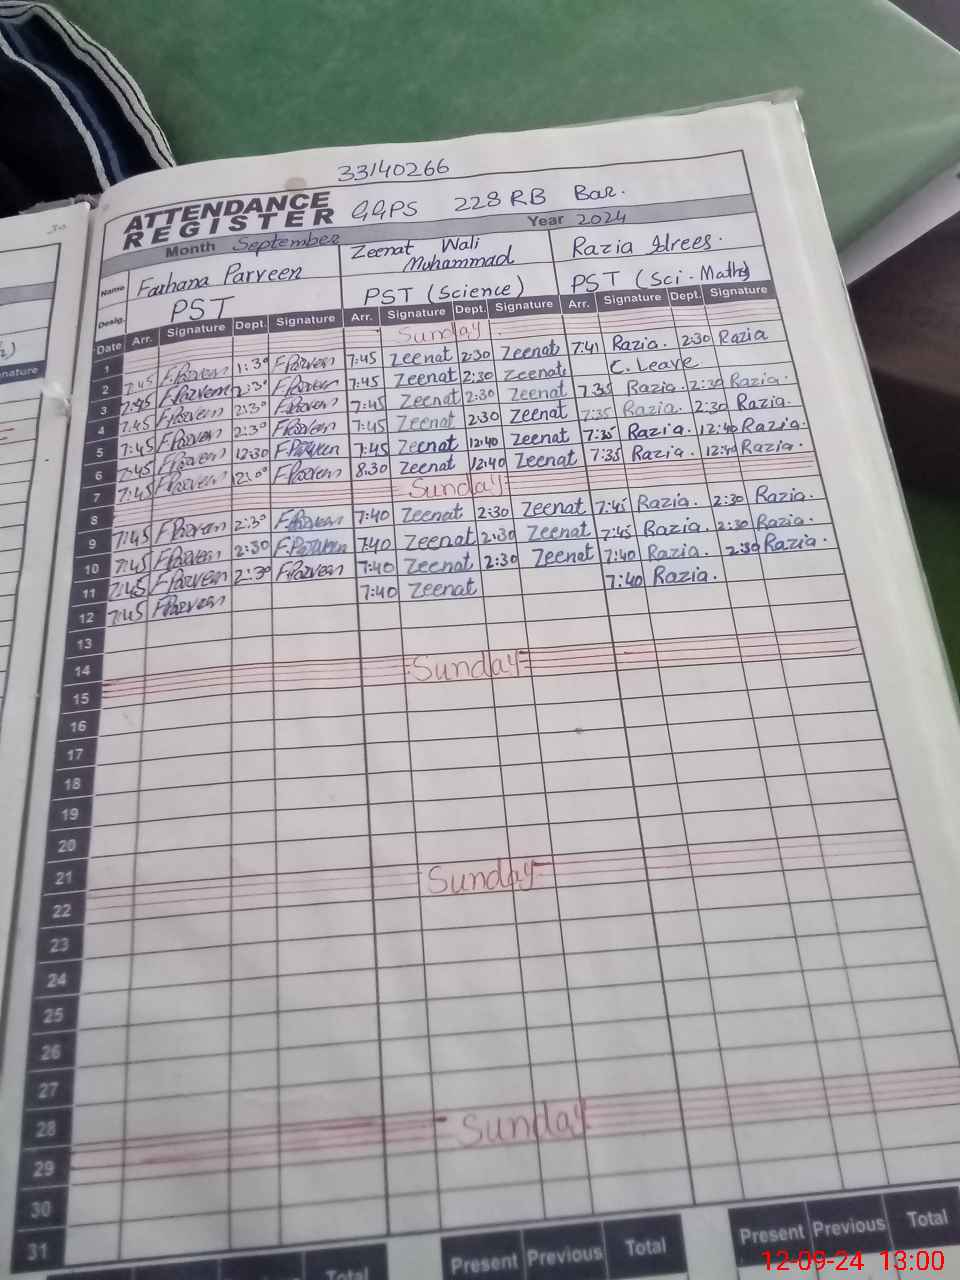 33140266
ATTENDANCE REGISTER GGPS 228 RB Bar.
Month September Year 2024
Name Farhana Parveen Zeenat Wali Muhammad Razia Idrees.
Desig. PST PST (Science) PST (Sci. Maths)
Date Arr. Signature Dept. Signature Arr. Signature Dept. Signature Arr. Signature Dept. Signature
1 Sunday
2 7:45 F.Parveen 1:30 F.Parveen 7:45 Zeenat 2:30 Zeenat 7:41 Razia. 2:30 Razia
3 7:45 F.Parveen 2:30 F.Parveen 7:45 Zeenat 2:30 Zeenat C. Leave
4 7:45 F.Parveen 2:30 F.Parveen 7:45 Zeenat 2:30 Zeenat 7:35 Razia. 2:30 Razia.
5 7:45 F.Parveen 2:30 F.Parveen 7:45 Zeenat 2:30 Zeenat 7:35 Razia. 2:30 Razia.
6 7:45 F.Parveen 12:30 F.Parveen 7:45 Zeenat 12:40 Zeenat 7:35 Razia. 12:40 Razia.
7 7:45 F.Parveen F.Parveen 8:30 Zeenat 12:40 Zeenat 7:35 Razia. 12:40 Razia.
8 Sunday
9 7:45 F.Parveen 2:30 F.Parveen 7:40 Zeenat 2:30 Zeenat 7:45 Razia. 2:30 Razia.
10 7:45 F.Parveen 2:30 F.Parveen 7:40 Zeenat 2:30 Zeenat 7:45 Razia. 2:30 Razia.
11 7:45 F.Parveen 2:30 F.Parveen 7:40 Zeenat 2:30 Zeenat 7:40 Razia. 2:30 Razia.
12 7:45 F.Parveen 7:40 Zeenat 7:40 Razia.
13
14
15 Sunday
16
17
18
19
20
21
22 Sunday
23
24
25
26
27
28
29 Sunday
30
31
Total Present Previous Total Present Previous Total
12-09-24 13:00